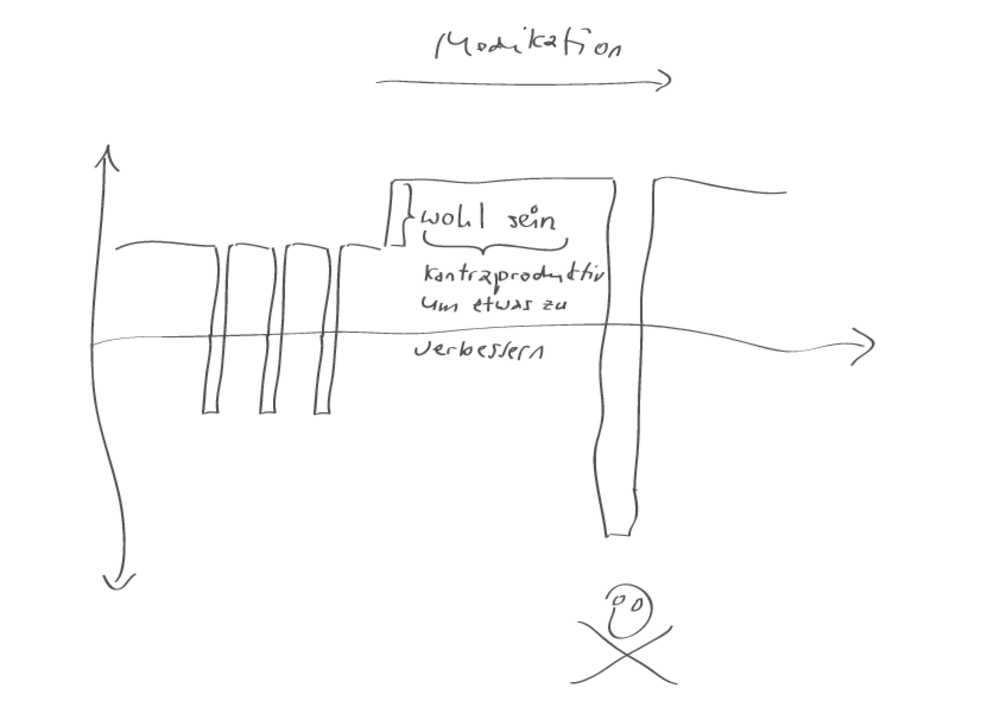 Medikation
wohl sein
kontraproduktiv
um etwas zu
verbessern